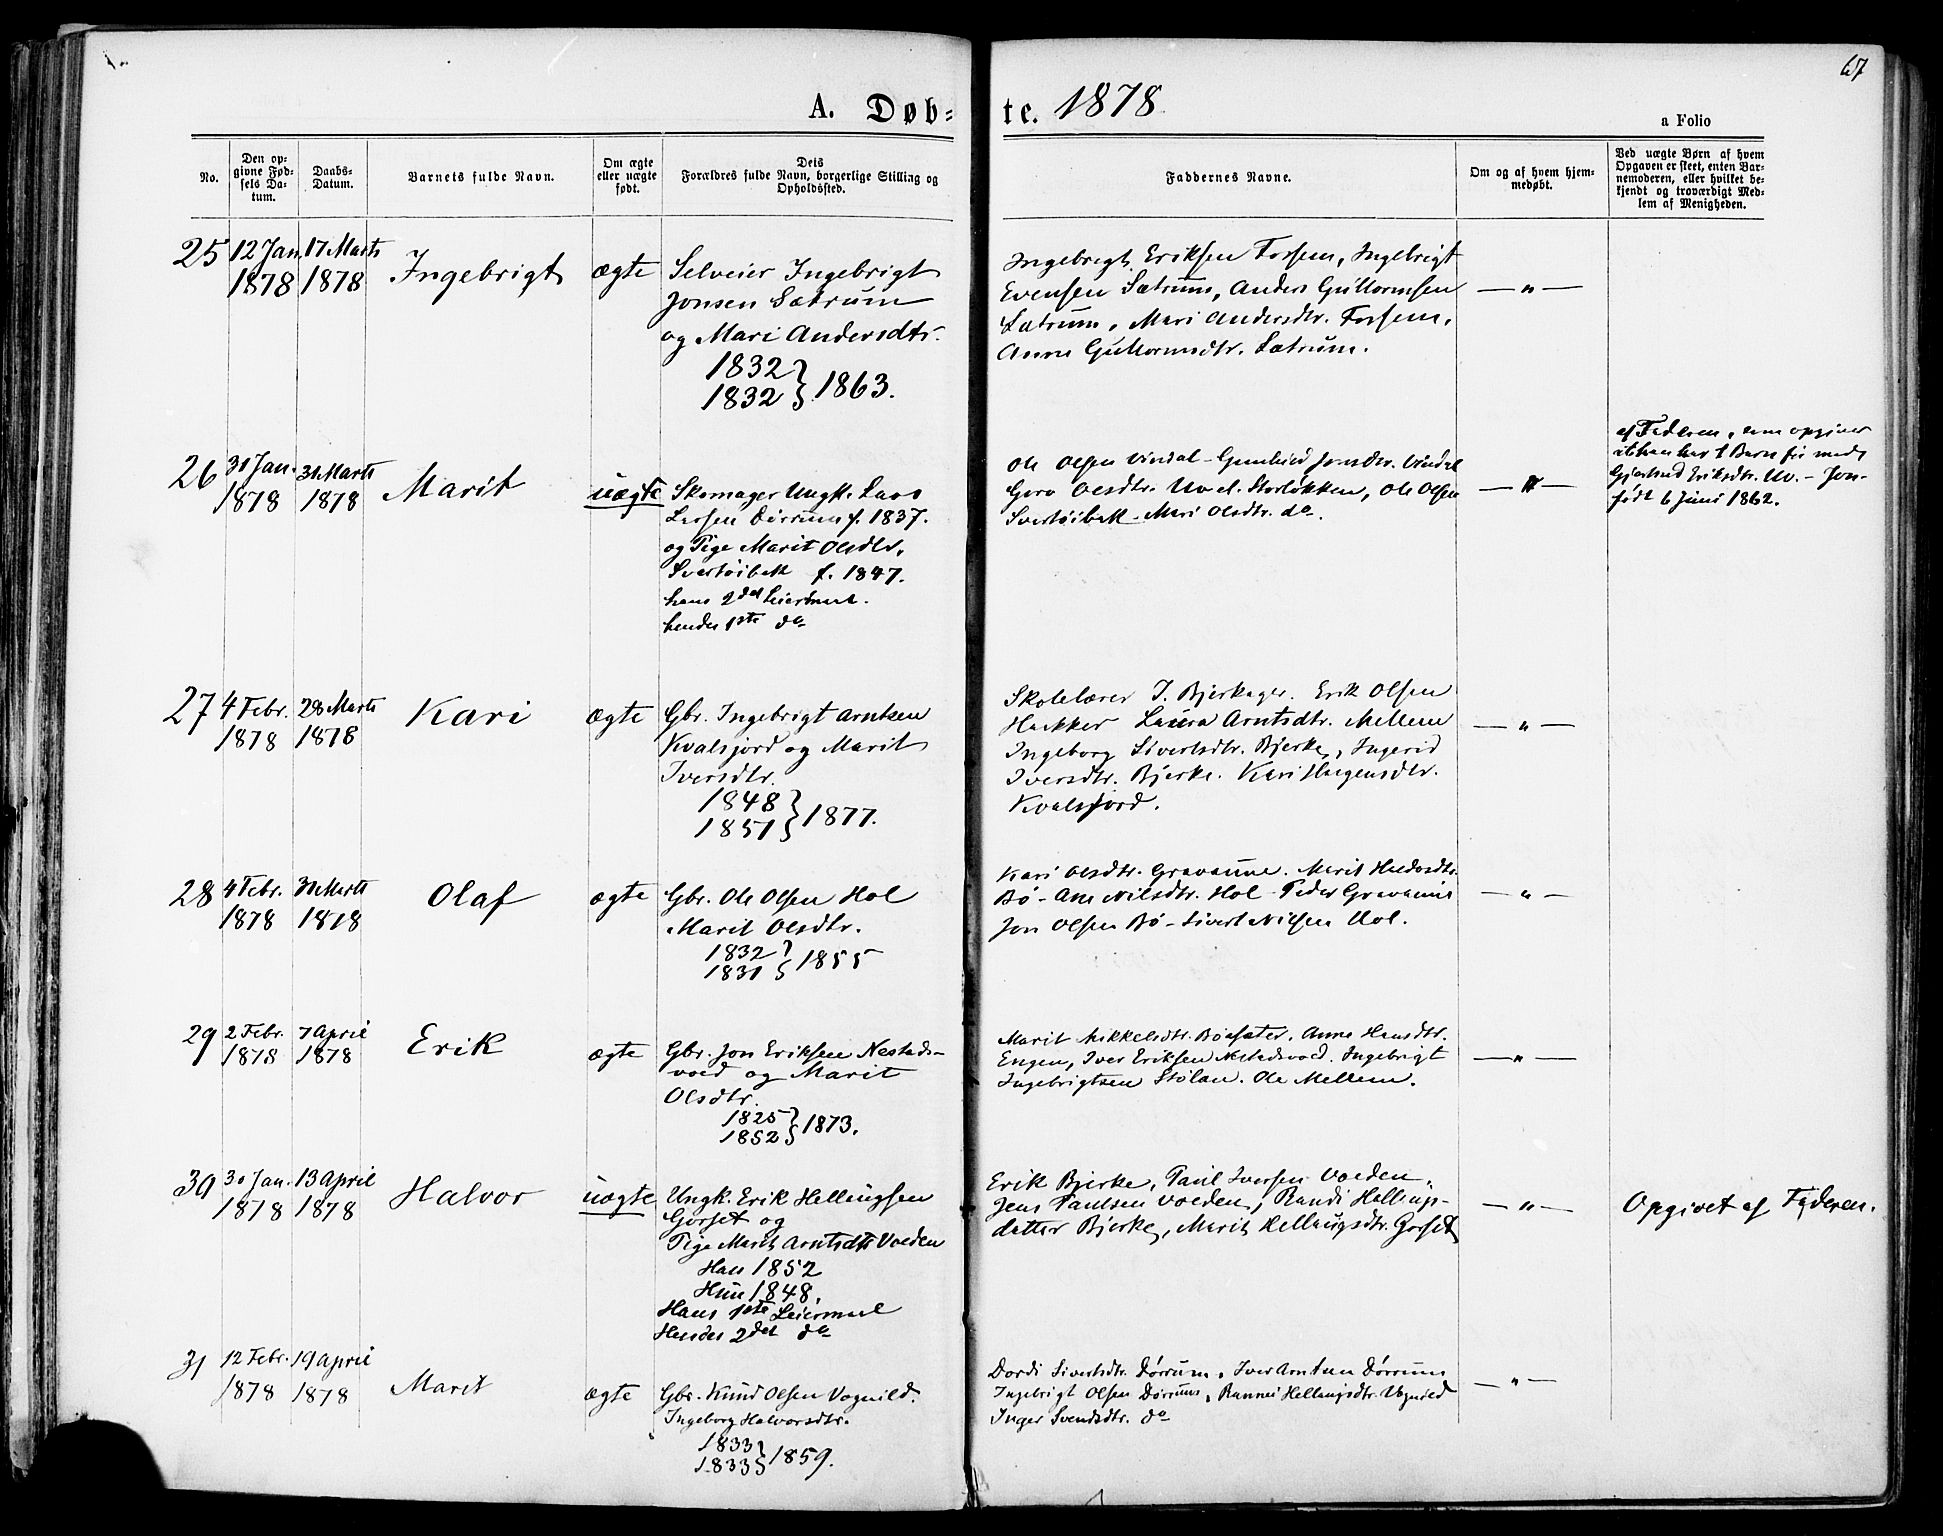 67
A. Døb=
te. 1878
a Folio
No.
Den op-
givne Fød-
sels Da-
tum.
Daabs-
Datum.
Barnets fulde Navn.
Om ægte
eller uægte
født.
Dets
Forældres fulde Navn, borgerlige Stilling og
Opholdssted.
Faddernes Navne.
Om og af hvem hjem-
medøbt.
Ved uægte Børn af hvem
Opgaven er skeet, enten Bar-
nemoderen, eller hvilket be-
kjendt og troværdigt Med-
lem af Menigheden.
25 12 Jan. 17 Marts
1878 1878
Ingebrigt
ægte
Selveier Ingebrigt
Jonsen Sætrum
og Mari Andersdtr.
1832
1832 } 1863.
Ingebrigt Eriksen Forsem, Ingebrigt
Evensen Sætrum, Anders Guttormsen
Sætrum, Mari Andersdtr. Forsem,
Anne Guttormsdtr. Sætrum.
— " —
26 30 Jan. 31 Marts
1878 1878
Marit
uægte
Skomager Ungk. Lars
Larsen Dørrum f. 1837.
og Pige Marit Olsdtr.
Svertøibek f. 1847.
hans 2det Leiermaal.
hendes 1ste do
Ole Olsen Vindal - Gunhild Jonsdr. Vindal
Goro Olsdtr. Uv d. Storløkken, Ole Olsen
Svertøibek - Mari Olsdtr. do.
— " —
af Faderen, som opgiver
at han har 1 Barn før med
Gjertrud Eriksdtr. Uv. - Jon -
født 6 Juni 1862.
27 4 Febr. 28 Marts
1878 1878
Kari
ægte
Gbr. Ingebrigt Arntsen
Kvalsjord og Marit
Iversdtr.
1848
1851 } 1877.
Skolelærer J. Bjerkager. Erik Olsen
Hækker Laura Arntsdtr. Mellem
Ingeborg Sivertsdtr. Bjerke, Ingerid
Iversdtr. Bjerke. Kari
Kvalsjord.
— " —
28 4 Febr. 31 Marts
1878 1878
Olaf
ægte
Gbr. Ole Olsen Hol
Marit Olsdtr.
1832
1831 } 1855
Kari Olsdtr. Gravaune. Marit Haldosdtr.
Bø - Ane Nilsdtr. Hol - Peder Gravaune
Jon Olsen Bø - Sivert Nilsen Hol.
— " —
29 2 Febr. 7 April
1878 1878
Erik
ægte
Gbr. Jon Eriksen Nestads-
vold og Marit
Olsdtr.
1825
1852 } 1873.
Marit Mikkelsdtr. Bøesæter. Anne Hansdtr.
Engen, Iver Eriksen Nestadsvold. Ingebrigt
Ingebrigtsen Stølan. Ole Mellem.
— " —
30 30 Jan. 13 April
1878 1878
Halvor
uægte
Ungk. Erik Hellingsen
Gorset og
Pige Marit Arntsdtr Volden
Han 1852
Hun 1848.
Hans 1ste Leiermaal
Hendes 2det do
Erik Bjerke, Paul Iversen Volden,
Jens Paulsen Volden, Randi Hellings-
datter Bjerke, Marit Hellingsdtr. Gorset
— " —
Opgivet af Faderen.
31 12 Febr. 19 April
1878 1878
Marit
ægte
Gbr. Knud Olsen Vognild.
Ingeborg Halvorsdtr.
1833
1833 } 1859.
Dordi Sivertsdtr. Dørrum, Iver Arntsen Dørrum
Ingebrigt Olsen Dørrum, Rannei Hellingsdtr. Vognild
Inger Svendsdtr. do
— " —